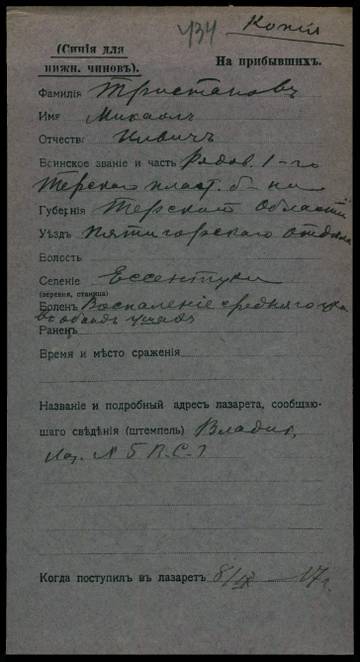 434 Копія
(Синія для
нижн. чиновъ).
На прибывшихъ.
Фамилія Тристановъ
Имя Михаилъ
Отчество Ильичъ
Воинское званіе и часть Рядов. 1-го
Терскаго пласт. б-на
Губернія Терской Области
Уѣздъ Пятигорскаго отдѣла
Волость
Селеніе Ессентуки
(деревня, станица)
Боленъ Воспаленіе средняго уха
въ обоихъ ушахъ
Раненъ
Время и мѣсто сраженія
Названіе и подробный адресъ лазарета, сообщаю-
щаго свѣдѣнія (штемпель) Владик.
Лаз. N 5 В.С.
Когда поступилъ въ лазаретъ 8/IX 17 г.